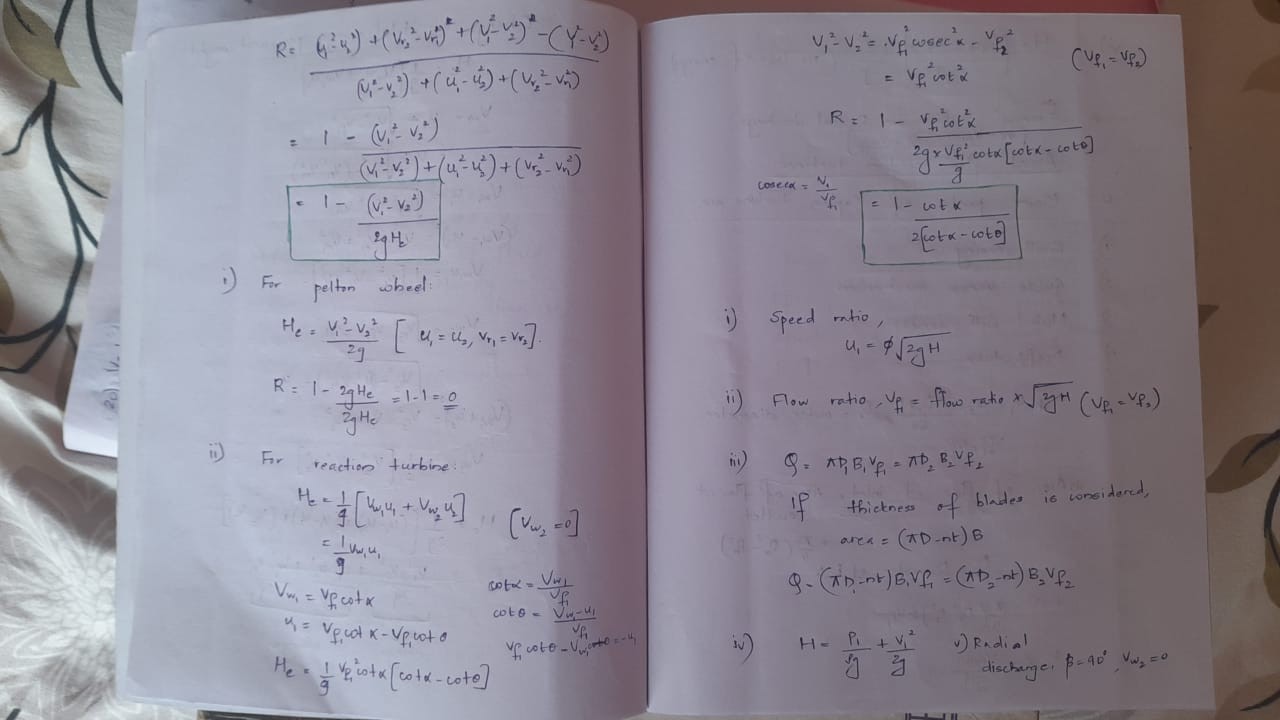 R = (u₁²-u₂²) + (Vr₂²-Vr₁²)² + (V₁²-V₂²)² - (V₁²-V₂²)
(V₁²-V₂²) + (u₁²-u₂²) + (Vr₂²-Vr₁²)
= 1 - (V₁²-V₂²)
(V₁²-V₂²) + (u₁²-u₂²) + (Vr₂²-Vr₁²)
= 1 - (V₁²-V₂²)
2gHe
i) For pelton wheel:
He = V₁²-V₂² [u₁ = u₂, Vr₁ = Vr₂].
2g
R = 1 - 2gHe = 1-1 = 0
2gHe
ii) For reaction turbine:
He = 1/g [Vw₁u₁ + Vw₂u₂] [Vw₂ = 0]
= 1/g Vw₁u₁
Vw₁ = Vf₁ cot α
cot α = Vw₁/Vf₁
u₁ = Vf₁ cot α - Vf₁ cot θ
cot θ = Vw₁-u₁/Vf₁
He = 1/g Vf₁² cot α [cot α - cot θ]
V₁²-V₂² = Vf₁² cosec²α - Vf₂²
(Vf₁ = Vf₂)
= Vf₁² cot²α
R = 1 - Vf₁² cot²α
2g × Vf₁²/g cot α [cot α - cot θ]
cosec α = V₁/Vf₁
= 1 - cot α
2[cot α - cot θ]
i) Speed ratio,
u₁ = φ√2gH
ii) Flow ratio, Vf₁ = flow ratio × √2gH (Vf₁ = Vf₂)
iii) Q = πD₁B₁Vf₁ = πD₂B₂Vf₂
If thickness of blades is considered,
area = (πD-nt)B
Q = (πD₁-nt)B₁Vf₁ = (πD₂-nt)B₂Vf₂
iv) H = P₁/ρg + V₁²/2g
v) Radial
discharge, β = 90°, Vw₂ = 0